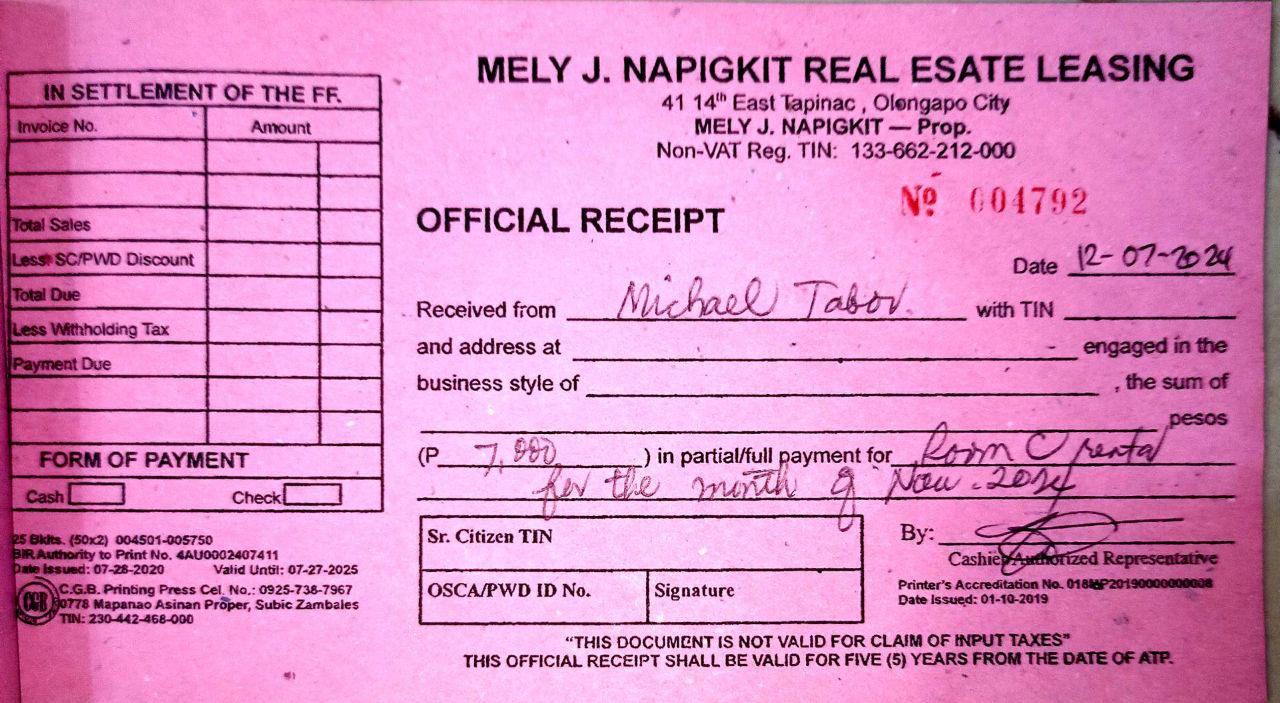 IN SETTLEMENT OF THE FF.
Invoice No. Amount
Total Sales
Less: SC/PWD Discount
Total Due
Less Withholding Tax
Payment Due
FORM OF PAYMENT
Cash Check
25 Bklts. (50x2) 004501-005750
BIR Authority to Print No. 4AU0002407411
Date Issued: 07-28-2020 Valid Until: 07-27-2025
CGB
C.G.B. Printing Press Cel. No.: 0925-738-7967
0778 Mapanao Asinan Proper, Subic Zambales
TIN: 230-442-468-000
MELY J. NAPIGKIT REAL ESATE LEASING
41 14th East Tapinac , Olongapo City
MELY J. NAPIGKIT — Prop.
Non-VAT Reg. TIN: 133-662-212-000
Nº 004792
OFFICIAL RECEIPT
Date 12-07-2024
Received from Michael Tabor. with TIN
and address at engaged in the
business style of , the sum of
pesos
(P 7,000 ) in partial/full payment for Room C rental
for the month of Nov. 2024
Sr. Citizen TIN
OSCA/PWD ID No. Signature
By:
Cashier/Authorized Representative
Printer's Accreditation No.
Date Issued: 01-10-2019
"THIS DOCUMENT IS NOT VALID FOR CLAIM OF INPUT TAXES"
THIS OFFICIAL RECEIPT SHALL BE VALID FOR FIVE (5) YEARS FROM THE DATE OF ATP.